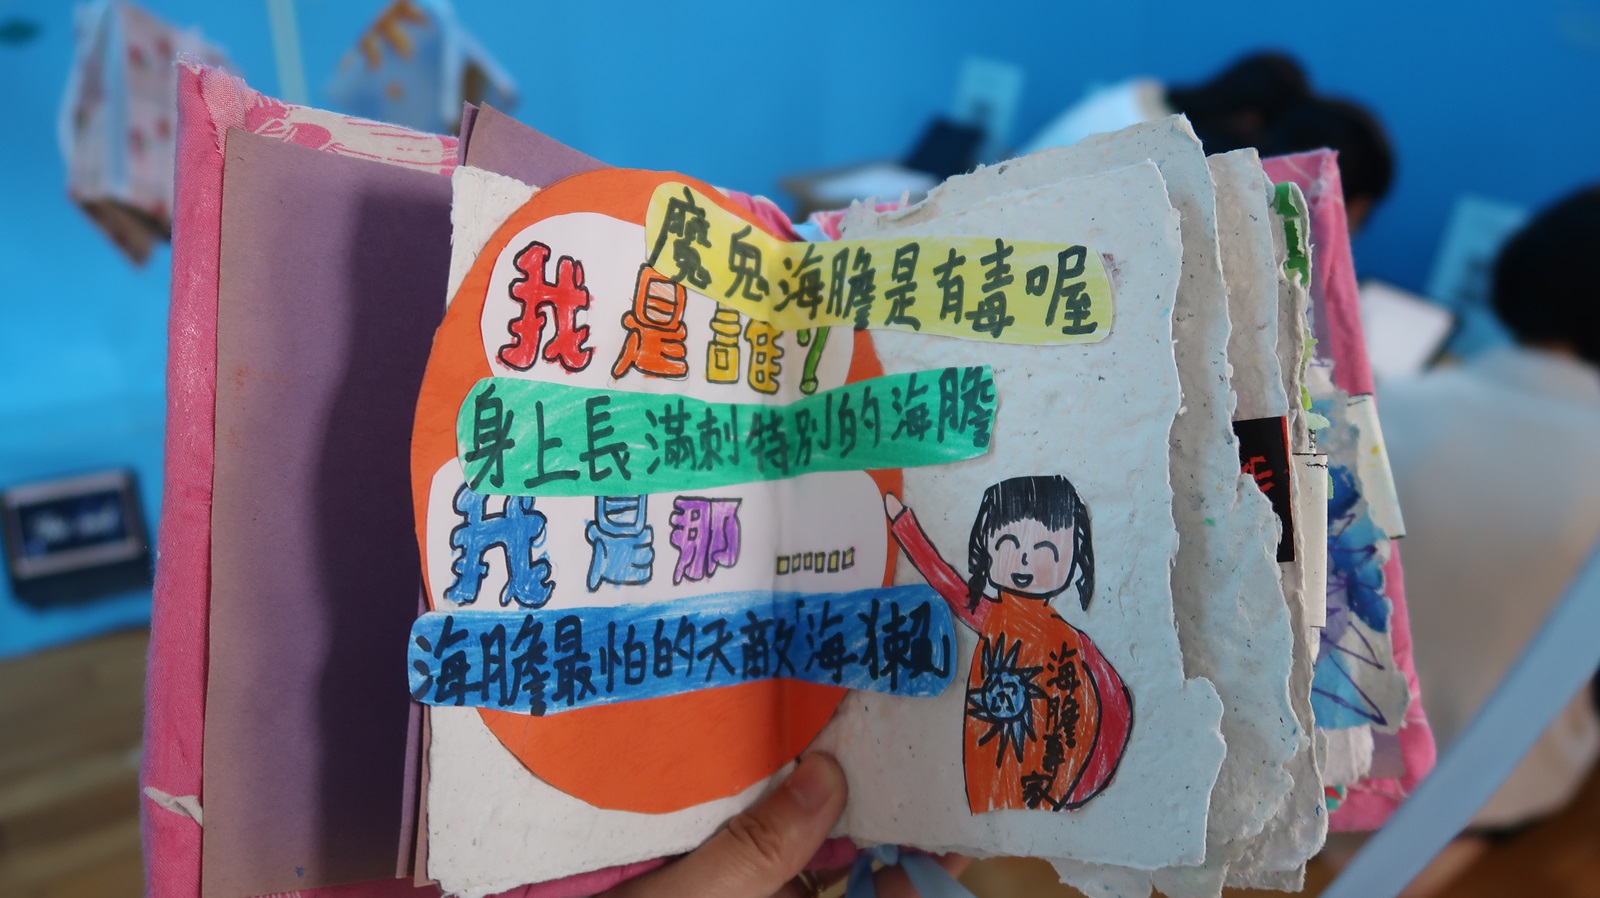 魔鬼海膽是有毒喔
我是誰?
身上長滿刺特別的海膽
我是那......
海膽最怕的天敵海獺
海膽專家